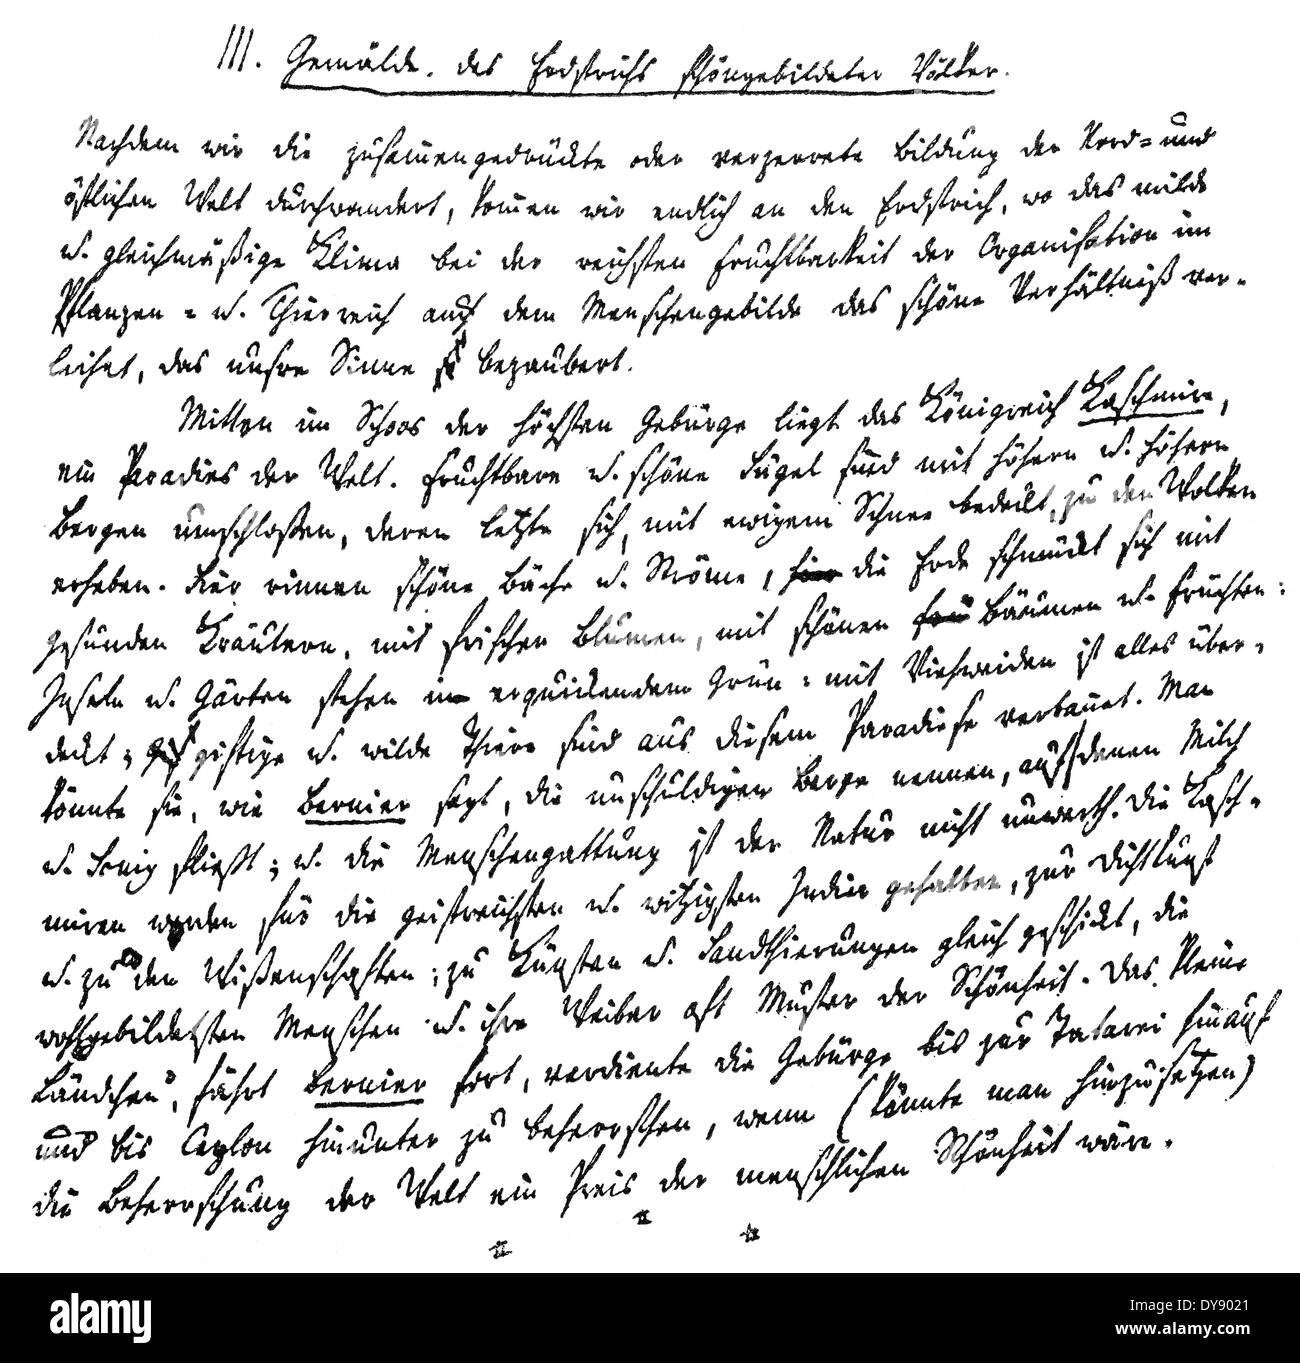 III. Gemälde des Erdstrichs schöngebildeter Völker.
Nachdem wir die zusammengedrückte oder verzerrete Bildung der Nord= und
östlichen Welt durchwandert, kommen wir endlich an den Erdstrich, wo das milde
u. gleichmäßige Klima bei der reichsten Fruchtbarkeit der Organisation im
Pflanzen = u. Thierreich auch dem Menschengebilde das schöne Verhältniß ver-
leihet, das unsre Sinne bezaubert.
Mitten im Schoos der höchsten Gebürge liegt das Königreich Kaschmire,
ein Paradies der Welt. Fruchtbare u. schöne Hügel sind mit höhern u. höhern
Bergen umschloßen, deren letzte sich, mit ewigem Schnee bedeckt, zu den Wolken
erheben. Hier rinnen schöne Bäche u. Ströme, hier die Erde schmückt sich mit
gesunden Kräutern, mit frischen Blumen, mit schönen Bäumen u. Früchten:
Inseln u. Gärten stehen in erquickendem Grün: mit Viehweiden ist alles über-
deckt; giftige u. wilde Thiere sind aus diesem Paradiese verbannet. Man
könnte sie, wie Bernier sagt, die unschuldigen Berge nennen, auf denen Milch
u. Honig fließt; u. die Menschengattung ist der Natur nicht unwerth. Die Kasch-
miren werden für die geistreichsten u. witzigsten Indier gehalten, zur Dichtkunst
u. zu den Wißenschaften; zu Künsten u. Handthierungen gleich geschickt, die
wohlgebildetsten Menschen u. ihre Weiber oft Muster der Schönheit. Das kleine
Ländchen, fährt Bernier fort, verdiente die Gebürge bis zur Tatarei hinauf
und bis Ceylon hinunter zu beherrschen, wenn (könnte man hinzusetzen)
die Beherrschung der Welt ein Preis der menschlichen Schönheit wäre.
alamy
Image ID: DY9021
www.alamy.com